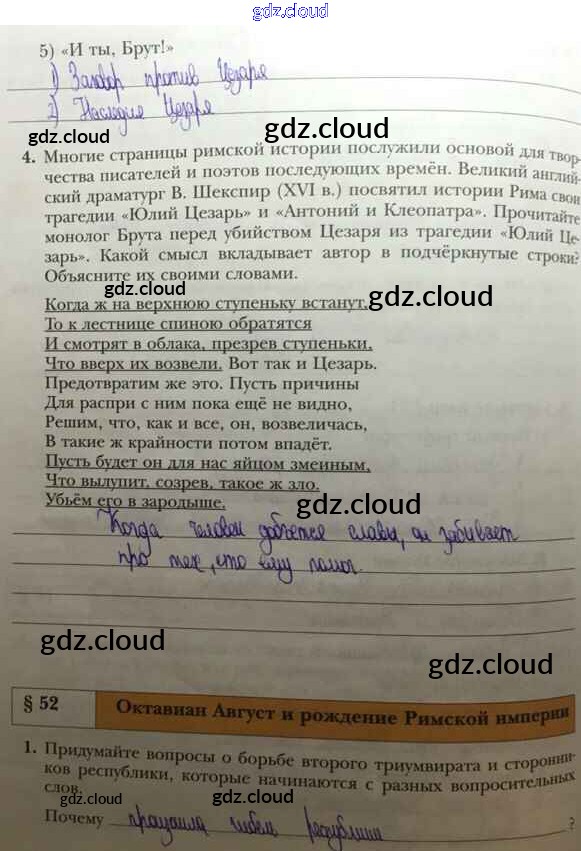 gdz.cloud
5) «И ты, Брут!»
1) Заговор против Цезаря
2) Наследия Цезаря
gdz.cloud
gdz.cloud
4. Многие страницы римской истории послужили основой для твор-
чества писателей и поэтов последующих времён. Великий англий-
ский драматург В. Шекспир (XVI в.) посвятил истории Рима свои
трагедии «Юлий Цезарь» и «Антоний и Клеопатра». Прочитайте
монолог Брута перед убийством Цезаря из трагедии «Юлий Це-
зарь». Какой смысл вкладывает автор в подчёркнутые строки?
Объясните их своими словами.
gdz.cloud
Когда ж на верхнюю ступеньку встанут,
То к лестнице спиною обратятся
И смотрят в облака, презрев ступеньки,
Что вверх их возвели. Вот так и Цезарь.
Предотвратим же это. Пусть причины
Для распри с ним пока ещё не видно,
Решим, что, как и все, он, возвеличась,
В такие ж крайности потом впадёт.
Пусть будет он для нас яйцом змеиным,
Что вылупит, созрев, такое ж зло.
Убьём его в зародыше.
gdz.cloud
Когда человек добъется славы, он забывает
про тех, кто ему помог.
gdz.cloud
gdz.cloud
§ 52 Октавиан Август и рождение Римской империи
1. Придумайте вопросы о борьбе второго триумвирата и сторонни-
ков республики, которые начинаются с разных вопросительных
слов.
gdz.cloud
gdz.cloud
Почему произошла гибель республики ?